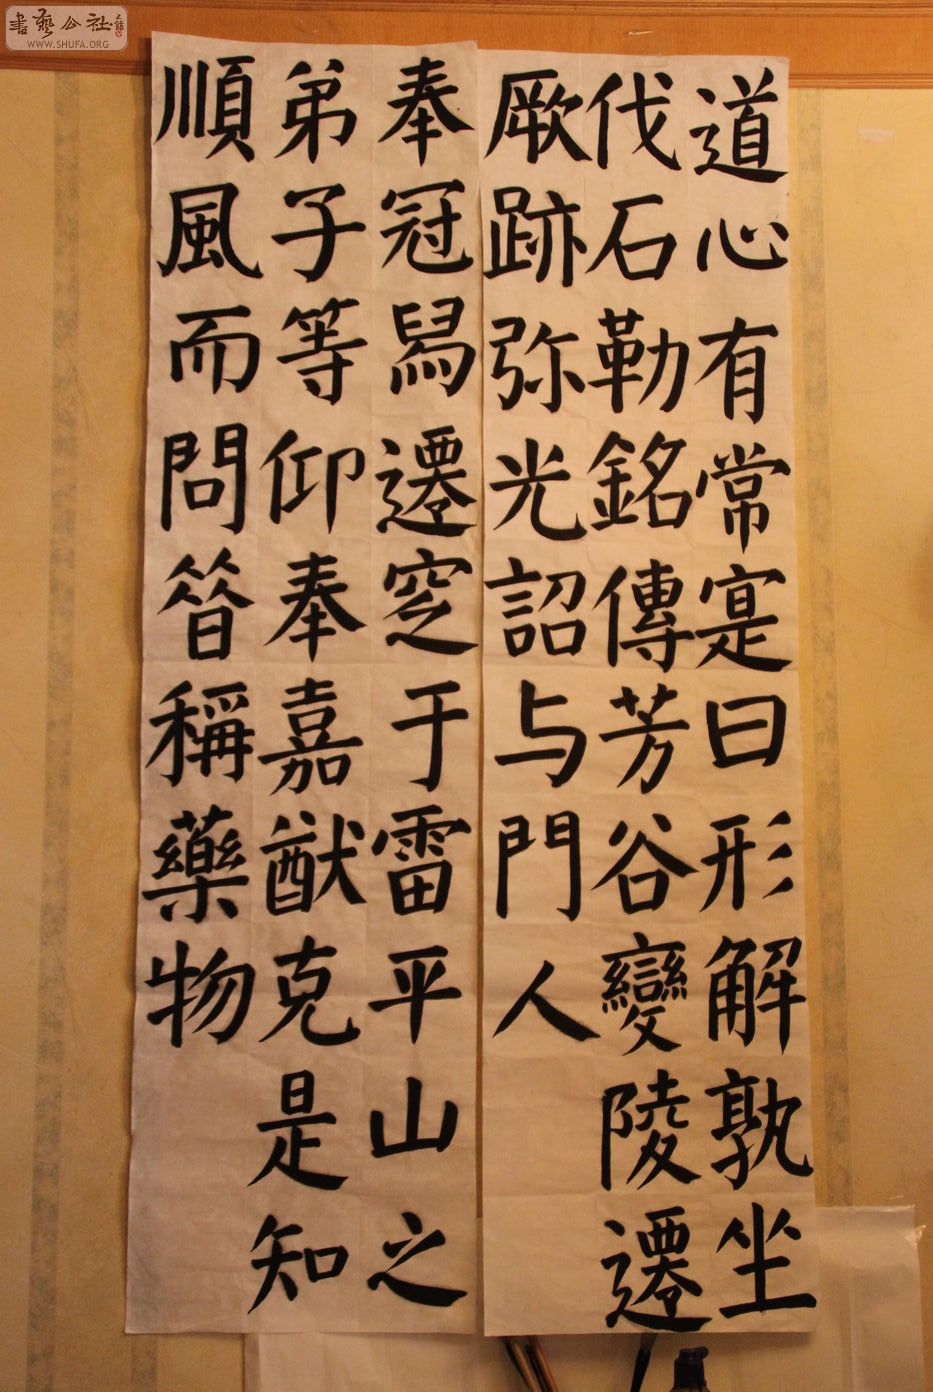 道心有常寔曰形解孰坐
伐石勒銘傳芳谷變陵遷
厥跡弥光詔与門人
奉冠舄遷窆于雷平山之
弟子等仰奉嘉猷克是知
順風而問昝稱藥物
書藝公社
WWW.SHUFA.ORG